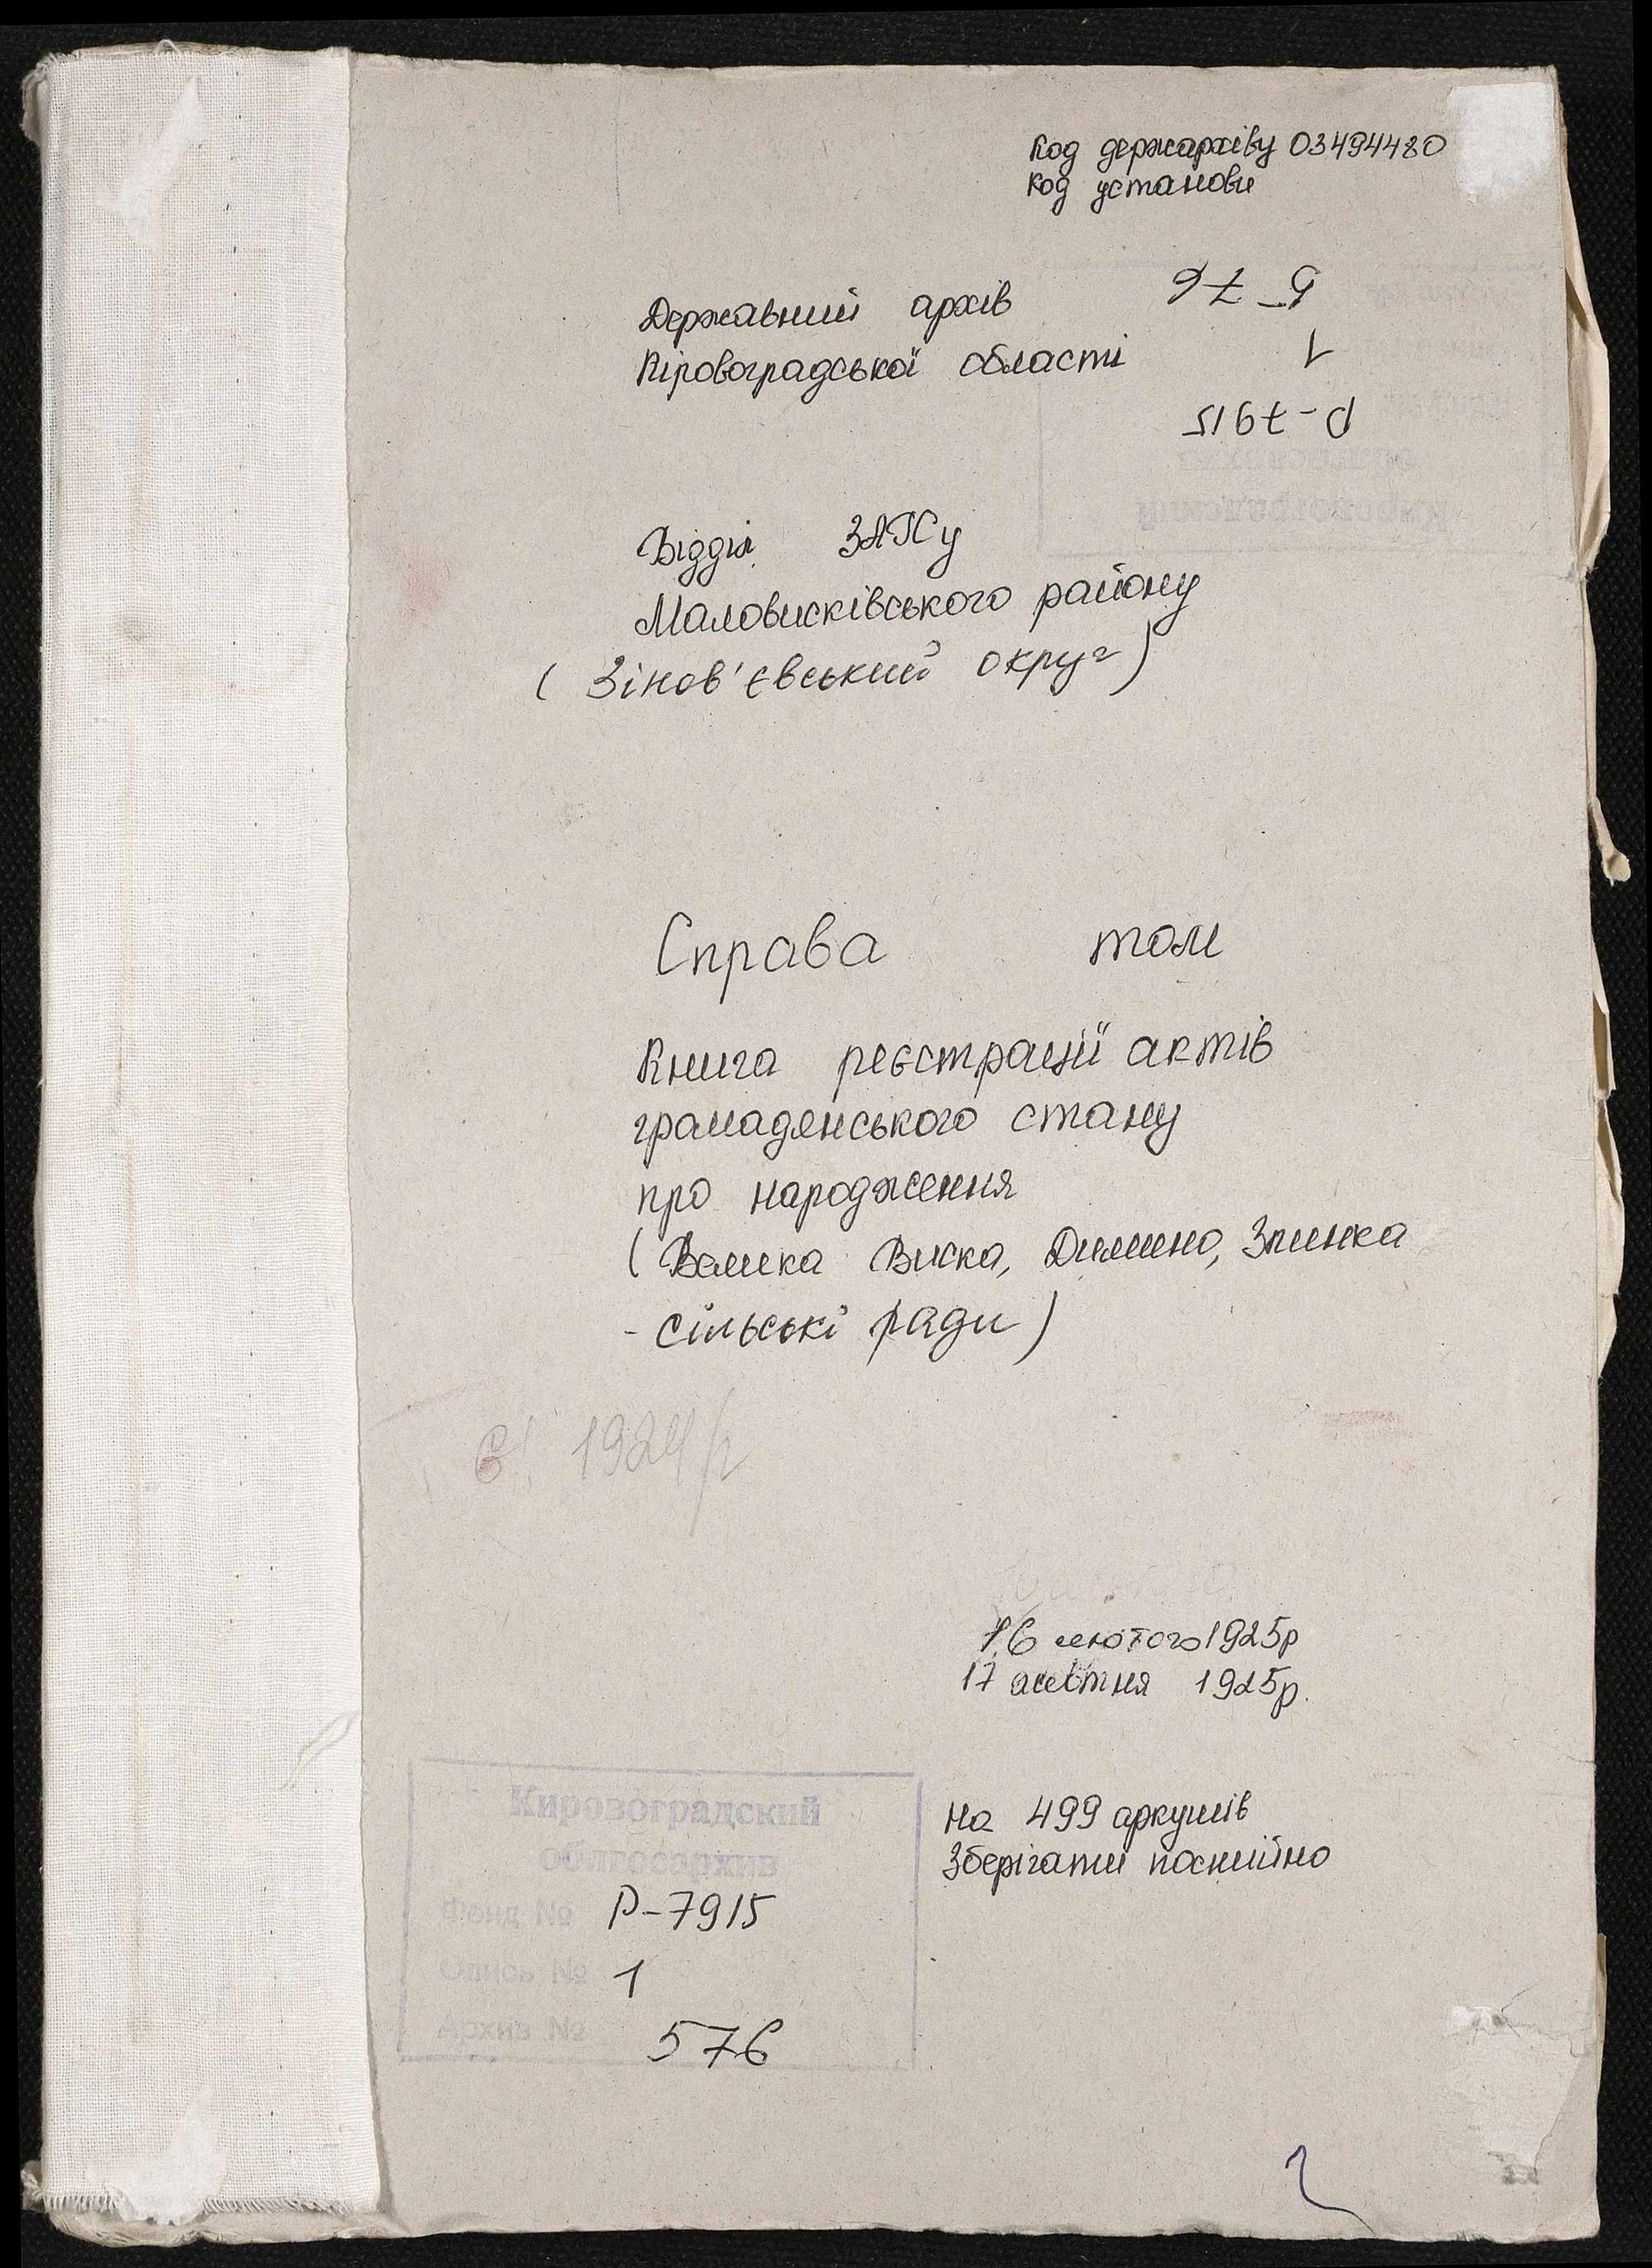 Код держархіву 03494480
Код установи
Державний архів
Кіровоградської області
576
1
Р-7915
Кировоградский
облгосархив
Відділ ЗАГСу
Маловисківського району
( Зінов'євський округ )
Справа том
Книга реєстрації актів
громадянського стану
про народження
( Велика Виска, Димино, Злинка
- сільські ради )
1924 р
16 лютого 1925р
17 жовтня 1925р.
На 499 аркушів
Зберігати постійно
Кировоградский
облгосархив
Фонд № Р-7915
Опись № 1
Архив № 576